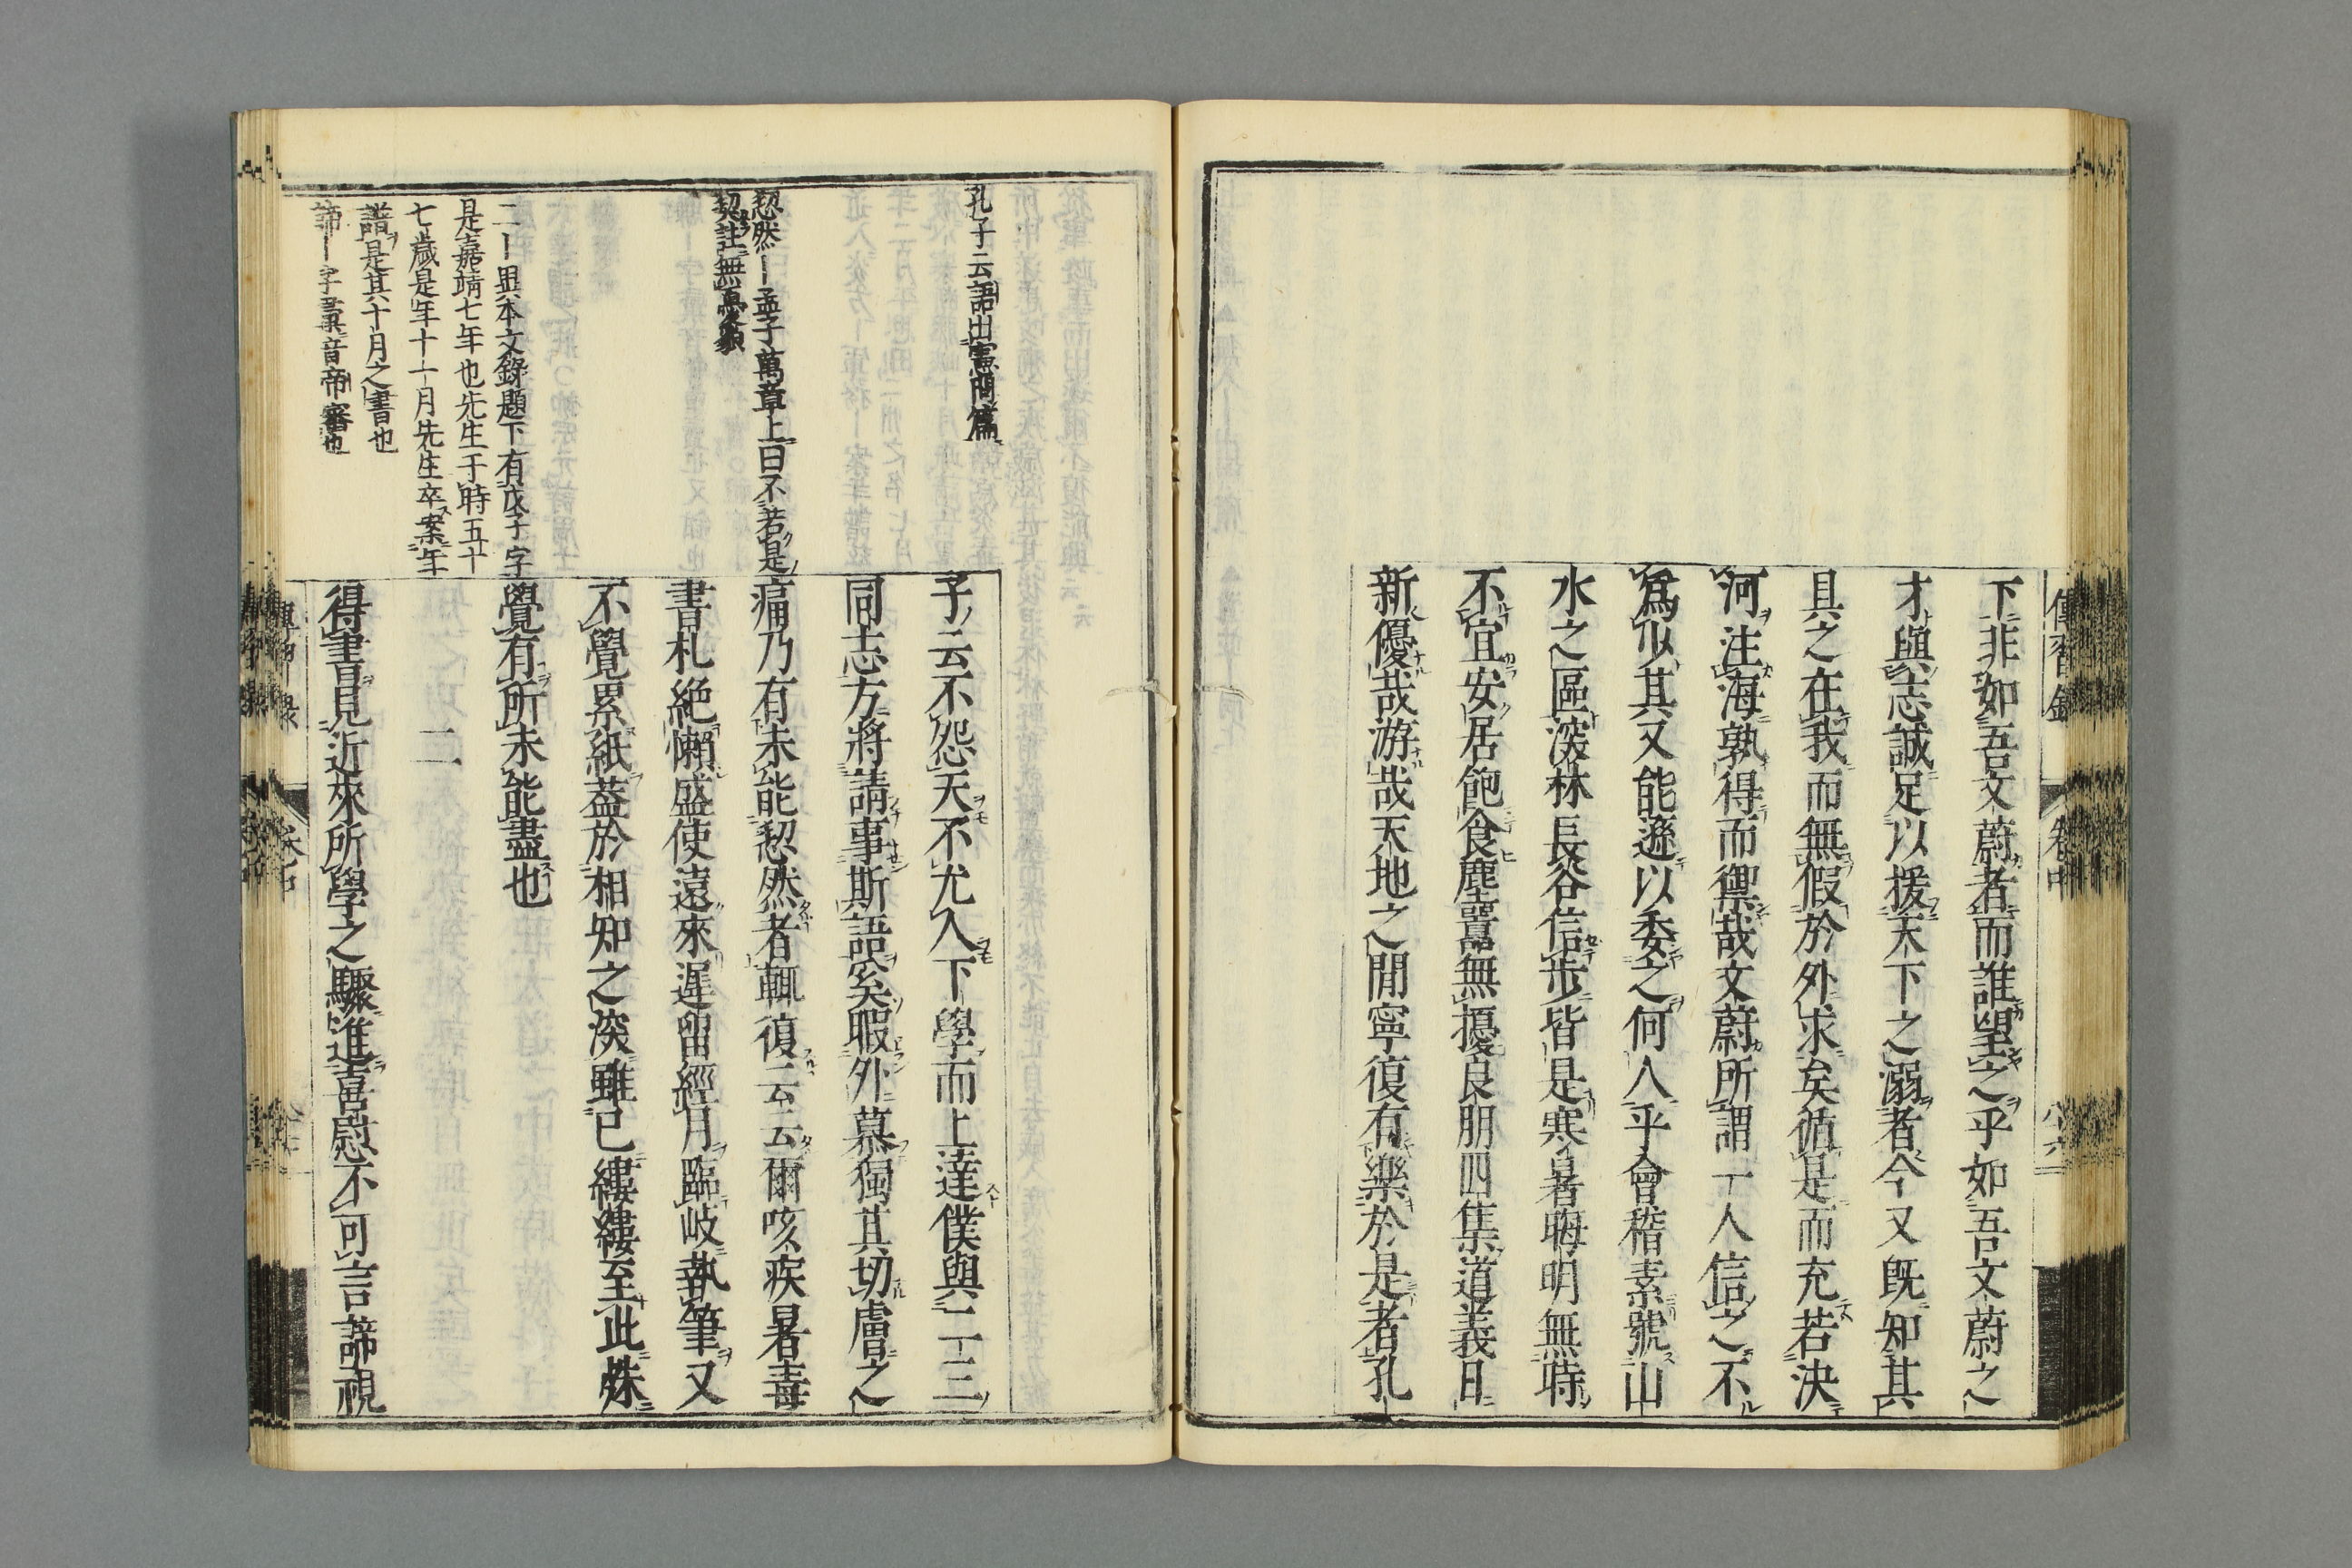 下非如吾文蔚者而誰望之乎如吾文蔚之
才與志誠足以援天下之溺者今又既知其
具之在我而無假於外求矣循是而充若決
河注海孰得而禦哉文蔚所謂一人信之不
爲少其又能遜以委之何人乎會稽素號山
水之區深林長谷信步皆是寒暑晦明無時
不宜安居飽食塵囂無擾良朋四集道義日
新優哉游哉天地之閒寧復有樂於是者孔
傳習錄
卷中
八六
孔子云語出憲問篇
恝然ー孟子萬章上曰不若是
恝註無愁貌
二ー異本文錄題下有戊子字
是嘉靖七年也先生于時五十
七歲是年十一月先生卒案年
譜是其十月之書也
諦ー字彙音帝審也
子云不怨天不尤人下學而上達僕與二三
同志方將請事斯語奚暇外慕獨其切膚之
痛乃有未能恝然者輒復云云爾咳疾暑毒
書札絶懶盛使遠來遲留經月臨岐執筆又
不覺累紙蓋於相知之深雖已縷縷至此殊
覺有所未能盡也
二
得書見近來所學之驟進喜慰不可言諦視